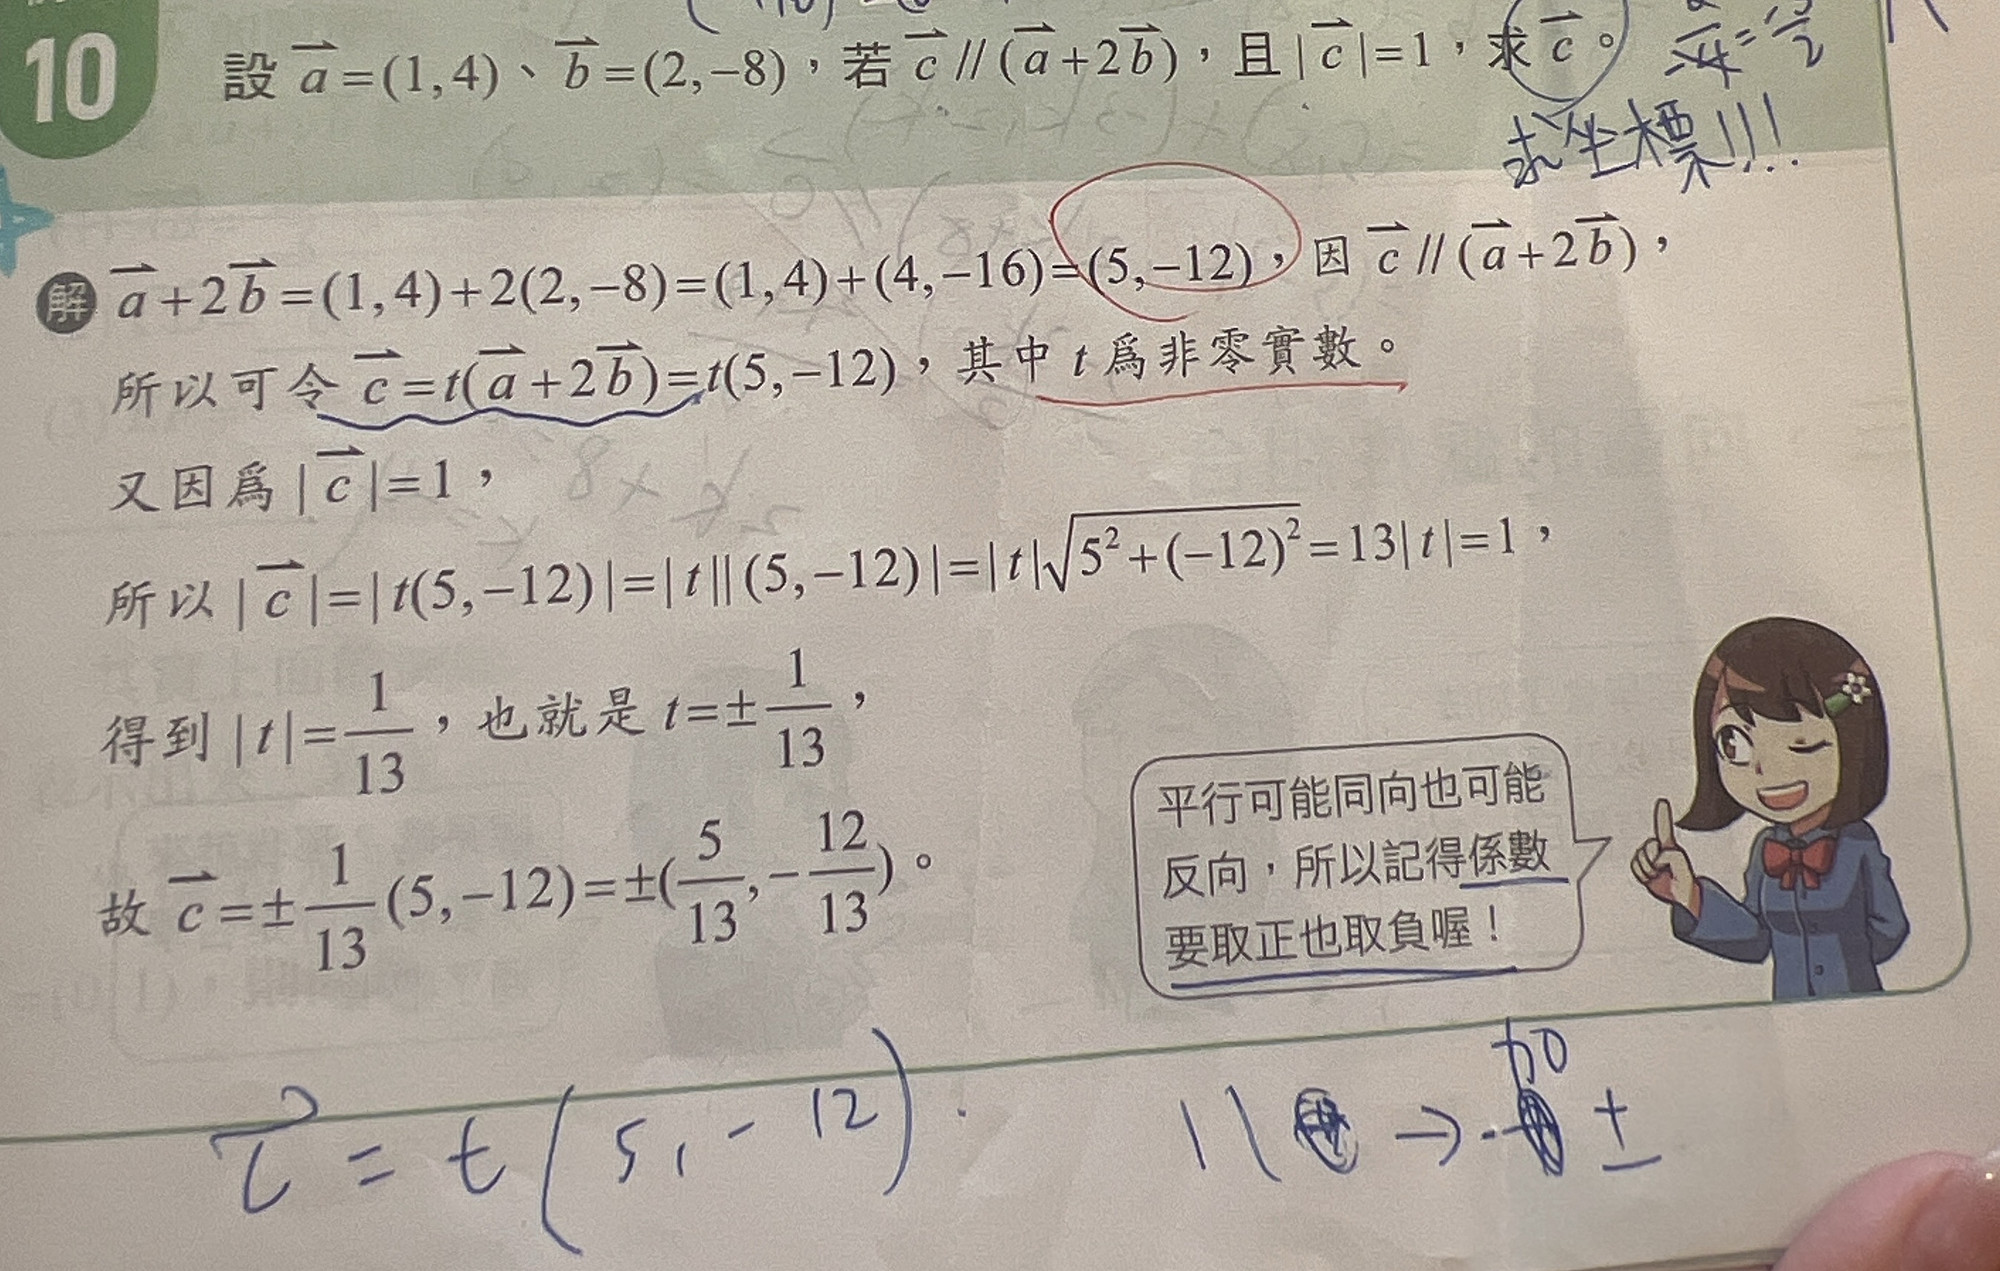 10
設 a⃗=(1,4)、b⃗=(2,−8)，若 c⃗ // (a⃗+2b⃗)，且 |c⃗|=1，求 c⃗。
求坐標!!!
解 a⃗+2b⃗=(1,4)+2(2,−8)=(1,4)+(4,−16)=(5,−12)，因 c⃗ // (a⃗+2b⃗)，
所以可令 c⃗=t(a⃗+2b⃗)=t(5,−12)，其中 t 爲非零實數。
又因爲 |c⃗|=1，
所以 |c⃗|=|t(5,−12)|=|t||(5,−12)|=|t|√(5²+(−12)²)=13|t|=1，
得到 |t|=1/13，也就是 t=±1/13，
故 c⃗=±1/13(5,−12)=±(5/13,−12/13)。
平行可能同向也可能
反向，所以記得係數
要取正也取負喔！
c⃗ = t(5,−12).
// → 加 ±